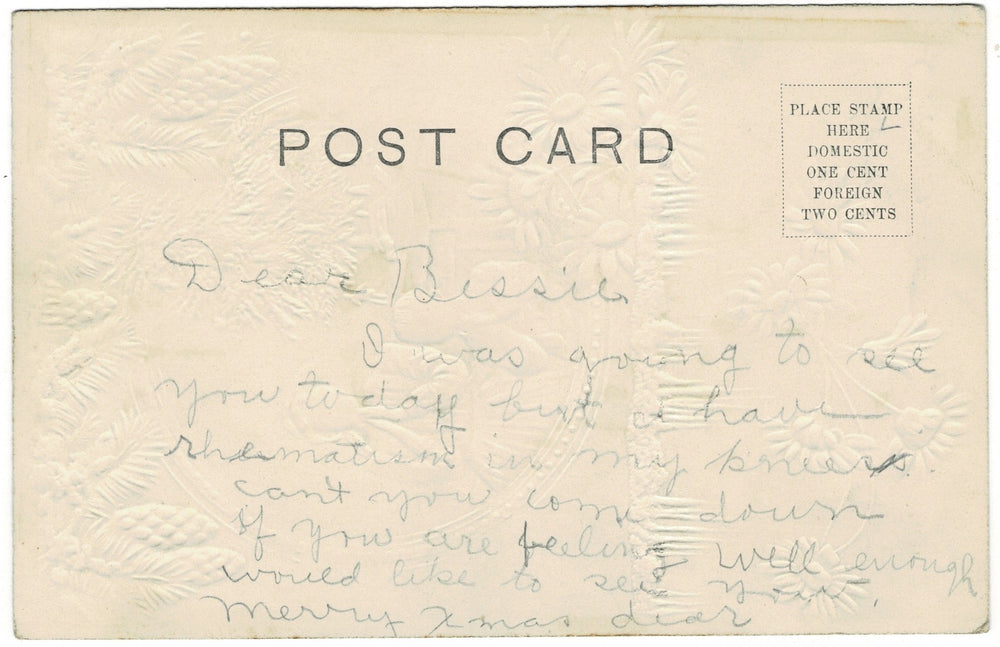 POST CARD
PLACE STAMP
HERE
DOMESTIC
ONE CENT
FOREIGN
TWO CENTS
Dear Bessie
I was going to see
you today but I have
rhematism in my knees.
cant you come down
If you are feeling well enough
would like to see you.
Merry Xmas dear